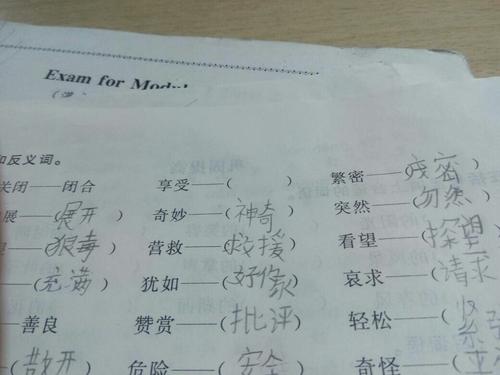 Exam for Modul
和反义词。
关闭——闭合 享受——( ) 繁密——(茂密)
展——(展开) 奇妙——(神奇) 突然——(忽然)
——(狠毒) 营救——(救援) 看望——(探望)
——(充满) 犹如——(好像) 哀求——(请求)
——善良 赞赏——(批评) 轻松——(紧
——(散开) 危险——(安全 奇怪——(